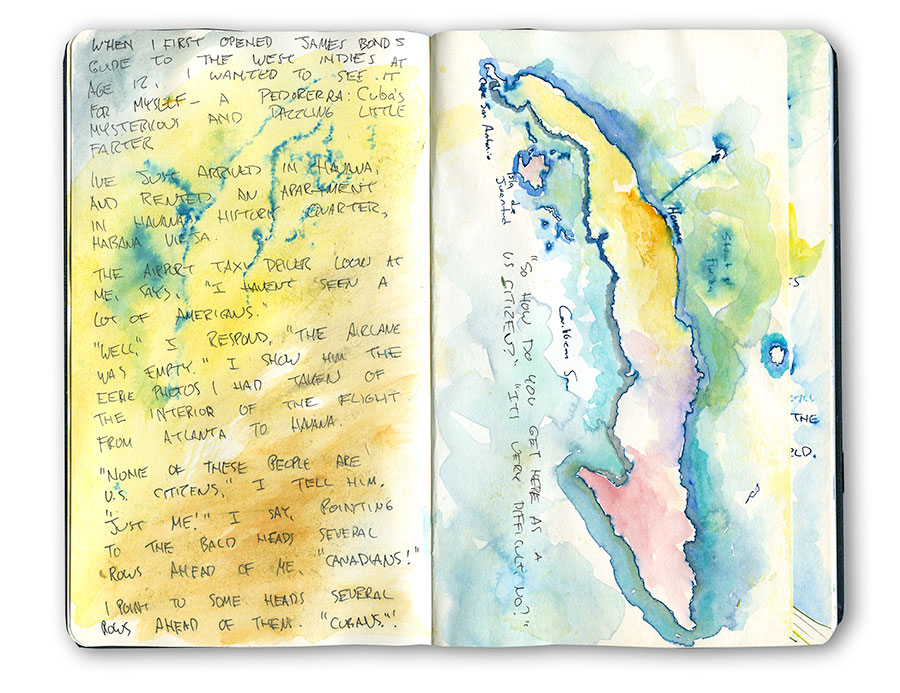 WHEN I FIRST OPENED JAMES BONDS
GUIDE TO THE WEST INDIES AT
AGE 12, I WANTED TO SEE IT
FOR MYSELF - A PEDORERRA: CUBA'S
MYSTERIOUS AND DAZZLING LITTLE
FARTER
IVE JUST ARRIVED IN HAVANA,
AND RENTED AN APARTMENT
IN HAVANAS HISTORIC QUARTER,
HABANA VIEJA.
THE AIRPORT TAXI DRIVER LOOKS AT
ME, SAYS, "I HAVENT SEEN A
LOT OF AMERICANS."
"WELL," I RESPOND, "THE AIRLANE
WAS EMPTY." I SHOW HIM THE
EERIE PHOTOS I HAD TAKEN OF
THE INTERIOR OF THE FLIGHT
FROM ATLANTA TO HAVANA.
"NONE OF THESE PEOPLE ARE
U.S. CITIZENS," I TELL HIM.
"JUST ME!" I SAY, POINTING
TO THE BALD HEADS SEVERAL
ROWS AHEAD OF ME, "CANADIANS!"
I POINT TO SOME HEADS SEVERAL
ROWS AHEAD OF THEM. "CUBANS"!
Cape San Antonio
Isla de
Juventud
Havana
Strait of
Florida
Caribbean Sea
"SO HOW DO YOU GET HERE AS A
US CITIZEN?" "ITS VERY DIFFICULT, NO?"
THE